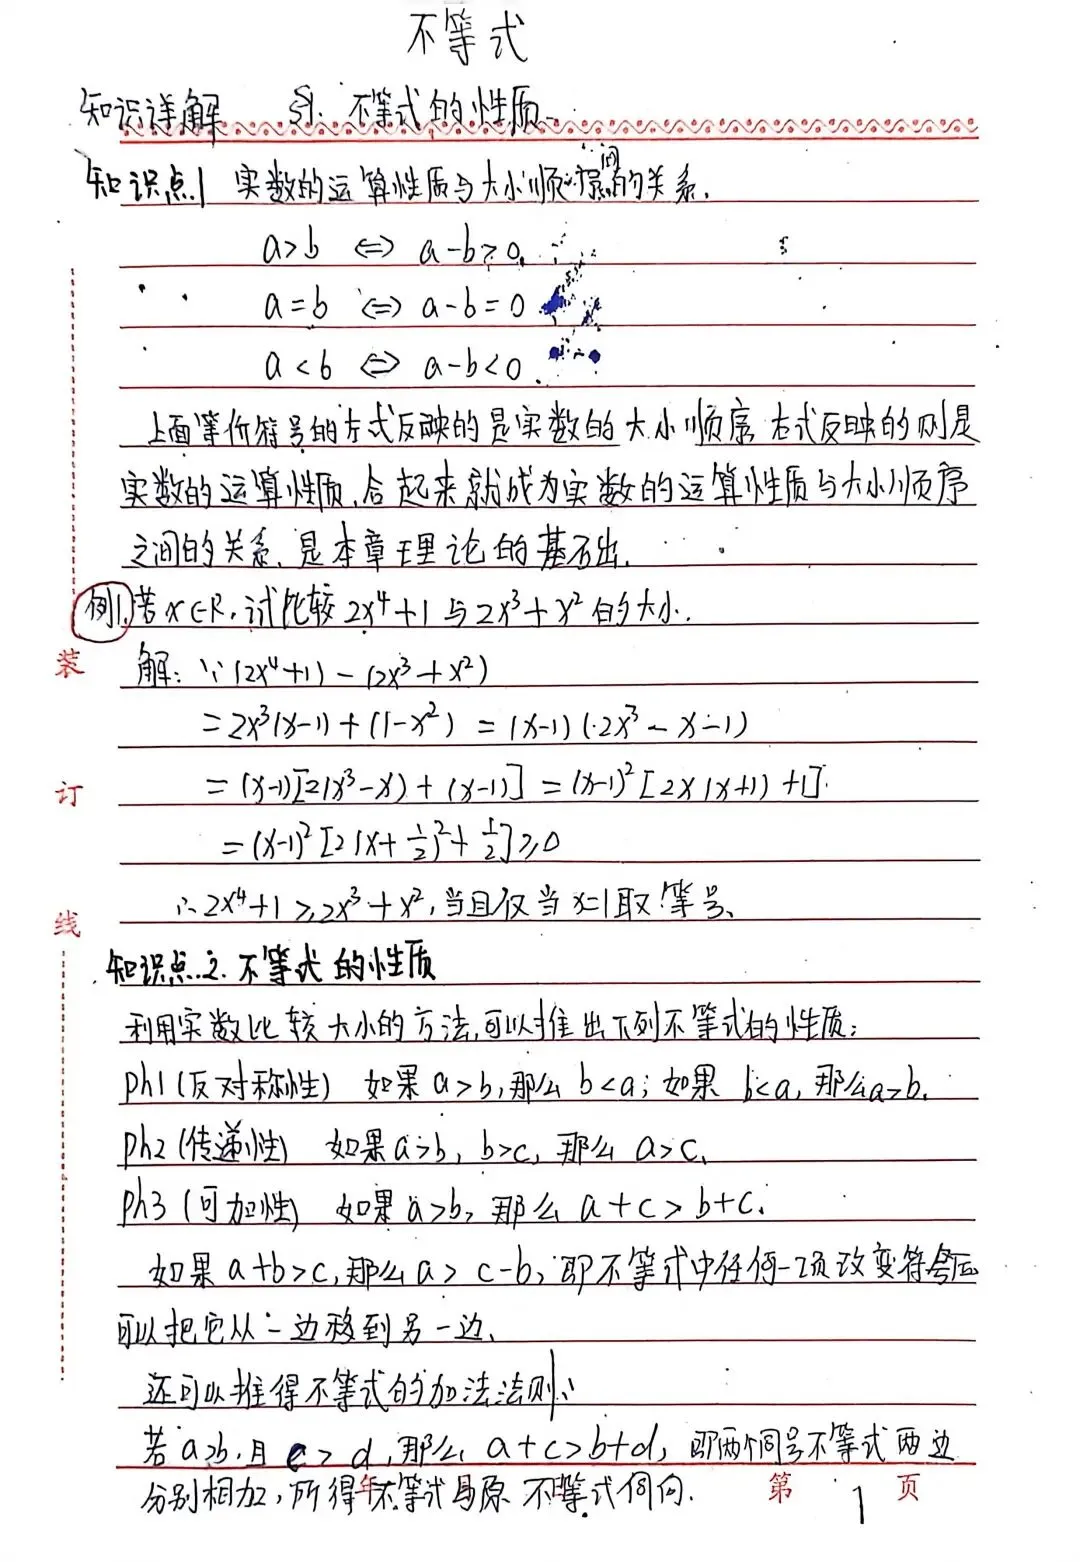 不等式
知识详解 §1. 不等式的性质
知识点1 实数的运算性质与大小顺序间的关系.
a>b ⇔ a-b>0.
a=b ⇔ a-b=0
a<b ⇔ a-b<0.
上面等价符号的左式反映的是实数的大小顺序 右式反映的则是
实数的运算性质,合起来就成为实数的运算性质与大小顺序
之间的关系,是本章理论的基石出.
例1.若x∈R,试比较2x⁴+1与2x³+x²的大小.
装
解:∵(2x⁴+1)-(2x³+x²)
=2x³(x-1)+(1-x²) =(x-1)(2x³-x-1)
订
=(x-1)[2(x³-x)+(x-1)]=(x-1)²[2x(x+1)+1].
=(x-1)²[2(x+½)²+½]≥0
∴2x⁴+1≥2x³+x²,当且仅当x=1取等号、
线
知识点2.不等式的性质
利用实数比较大小的方法,可以推出下列不等式的性质:
ph1(反对称性) 如果a>b,那么b<a;如果b<a,那么a>b.
ph2(传递性) 如果a>b,b>c,那么a>c、
ph3(可加性) 如果a>b,那么a+c>b+c.
如果a+b>c,那么a>c-b,即不等式中任何一项改变符号后
可以把它从一边移到另一边、
还可以推得不等式的加法法则:
若a>b,且c>d,那么a+c>b+d,即两个同号不等式两边
分别相加,所得不等式与原不等式同向.
年
第 1 页